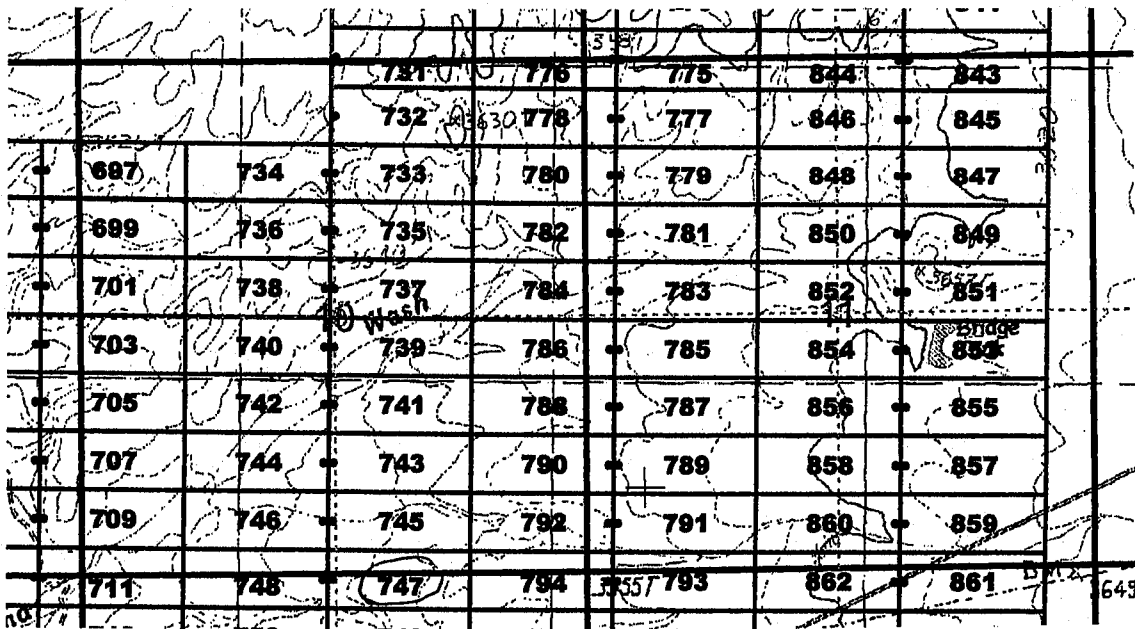 731 776 775 844 843
732 3630 778 777 846 845
697 734 733 780 779 848 847
699 736 735 782 781 850 849
701 738 737 784 783 852 851
Wash
Bridge
703 740 739 786 785 854 853
705 742 741 788 787 856 855
707 744 743 790 789 858 857
709 746 745 792 791 860 859
711 748 747 794 3555T 793 862 861